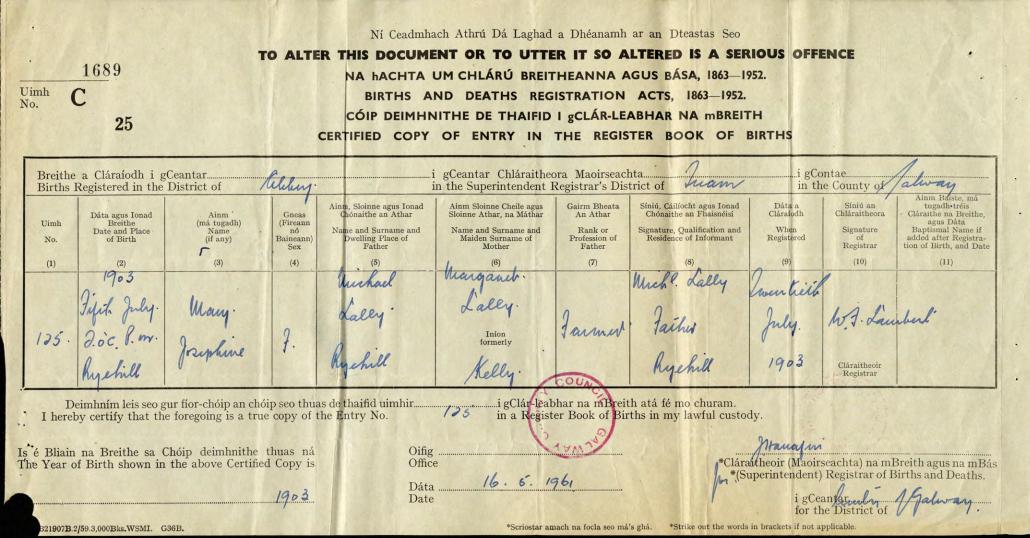 Ní Ceadmhach Athrú Dá Laghad a Dhéanamh ar an Dteastas Seo
TO ALTER THIS DOCUMENT OR TO UTTER IT SO ALTERED IS A SERIOUS OFFENCE
NA hACHTA UM CHLÁRÚ BREITHEANNA AGUS BÁSA, 1863—1952.
BIRTHS AND DEATHS REGISTRATION ACTS, 1863—1952.
CÓIP DEIMHNITHE DE THAIFID I gCLÁR-LEABHAR NA mBREITH
CERTIFIED COPY OF ENTRY IN THE REGISTER BOOK OF BIRTHS
1689
Uimh
No. C
25
Breithe a Cláraíodh i gCeantar
Births Registered in the District of
i gCeantar Chláraitheora Maoirseachta
in the Superintendent Registrar's District of Tuam
i gContae
in the County of Galway
Uimh
No.
(1)
Dáta agus Ionad
Breithe
Date and Place
of Birth
(2)
Ainm
(má tugadh)
Name
(if any)
(3)
Gneas
(Fireann
nó
Baineann)
Sex
(4)
Ainm, Sloinne agus Ionad
Chónaithe an Athar
Name and Surname and
Dwelling Place of
Father
(5)
Ainm, Sloinne Cheile agus
Sloinne Athar, na Máthar
Name and Surname and
Maiden Surname of
Mother
(6)
Gairm Bheata
An Athar
Rank or
Profession of
Father
(7)
Síniú, Cáilíocht agus Ionad
Chónaithe an Fhaisnéisí
Signature, Qualification and
Residence of Informant
(8)
Dáta a
Cláraíodh
When
Registered
(9)
Síniú an
Chláraitheora
Signature
of
Registrar
(10)
Ainm Baiste, má
tugadh-tréis
Cláraithe na Breithe,
agus Dáta
Baptismal Name if
added after Registra-
tion of Birth, and Date
(11)
125.
1903
Fifth July.
2.oc. P.m.
Ryehill
Mary
Josephine
F.
Michael
Lally.
Ryehill
Margaret.
Lally.
Iníon
formerly
Kelly.
Farmer
Michl. Lally
Father
Ryehill
Twentieth
July.
1903
W. F. Lambert
Cláraitheoir
Registrar
Deimhním leis seo gur fíor-chóip an chóip seo thuas de thaifid uimhir
I hereby certify that the foregoing is a true copy of the Entry No. 125
i gClár-leabhar na mBreith atá fé mo churam.
in a Register Book of Births in my lawful custody.
COUNTY COUNCIL GALWAY
Is é Bliain na Breithe sa Chóip deimhnithe thuas ná
The Year of Birth shown in the above Certified Copy is
1903
Oifig
Office
Dáta
Date
16. 5. 1961
*Cláraitheoir (Maoirseachta) na mBreith agus na mBás
for *(Superintendent) Registrar of Births and Deaths.
i gCeantar
for the District of County Galway.
321907B.2/59.3,000Bks.WSMI. G36B.
*Scriostar amach na focla seo má's ghá.
*Strike out the words in brackets if not applicable.